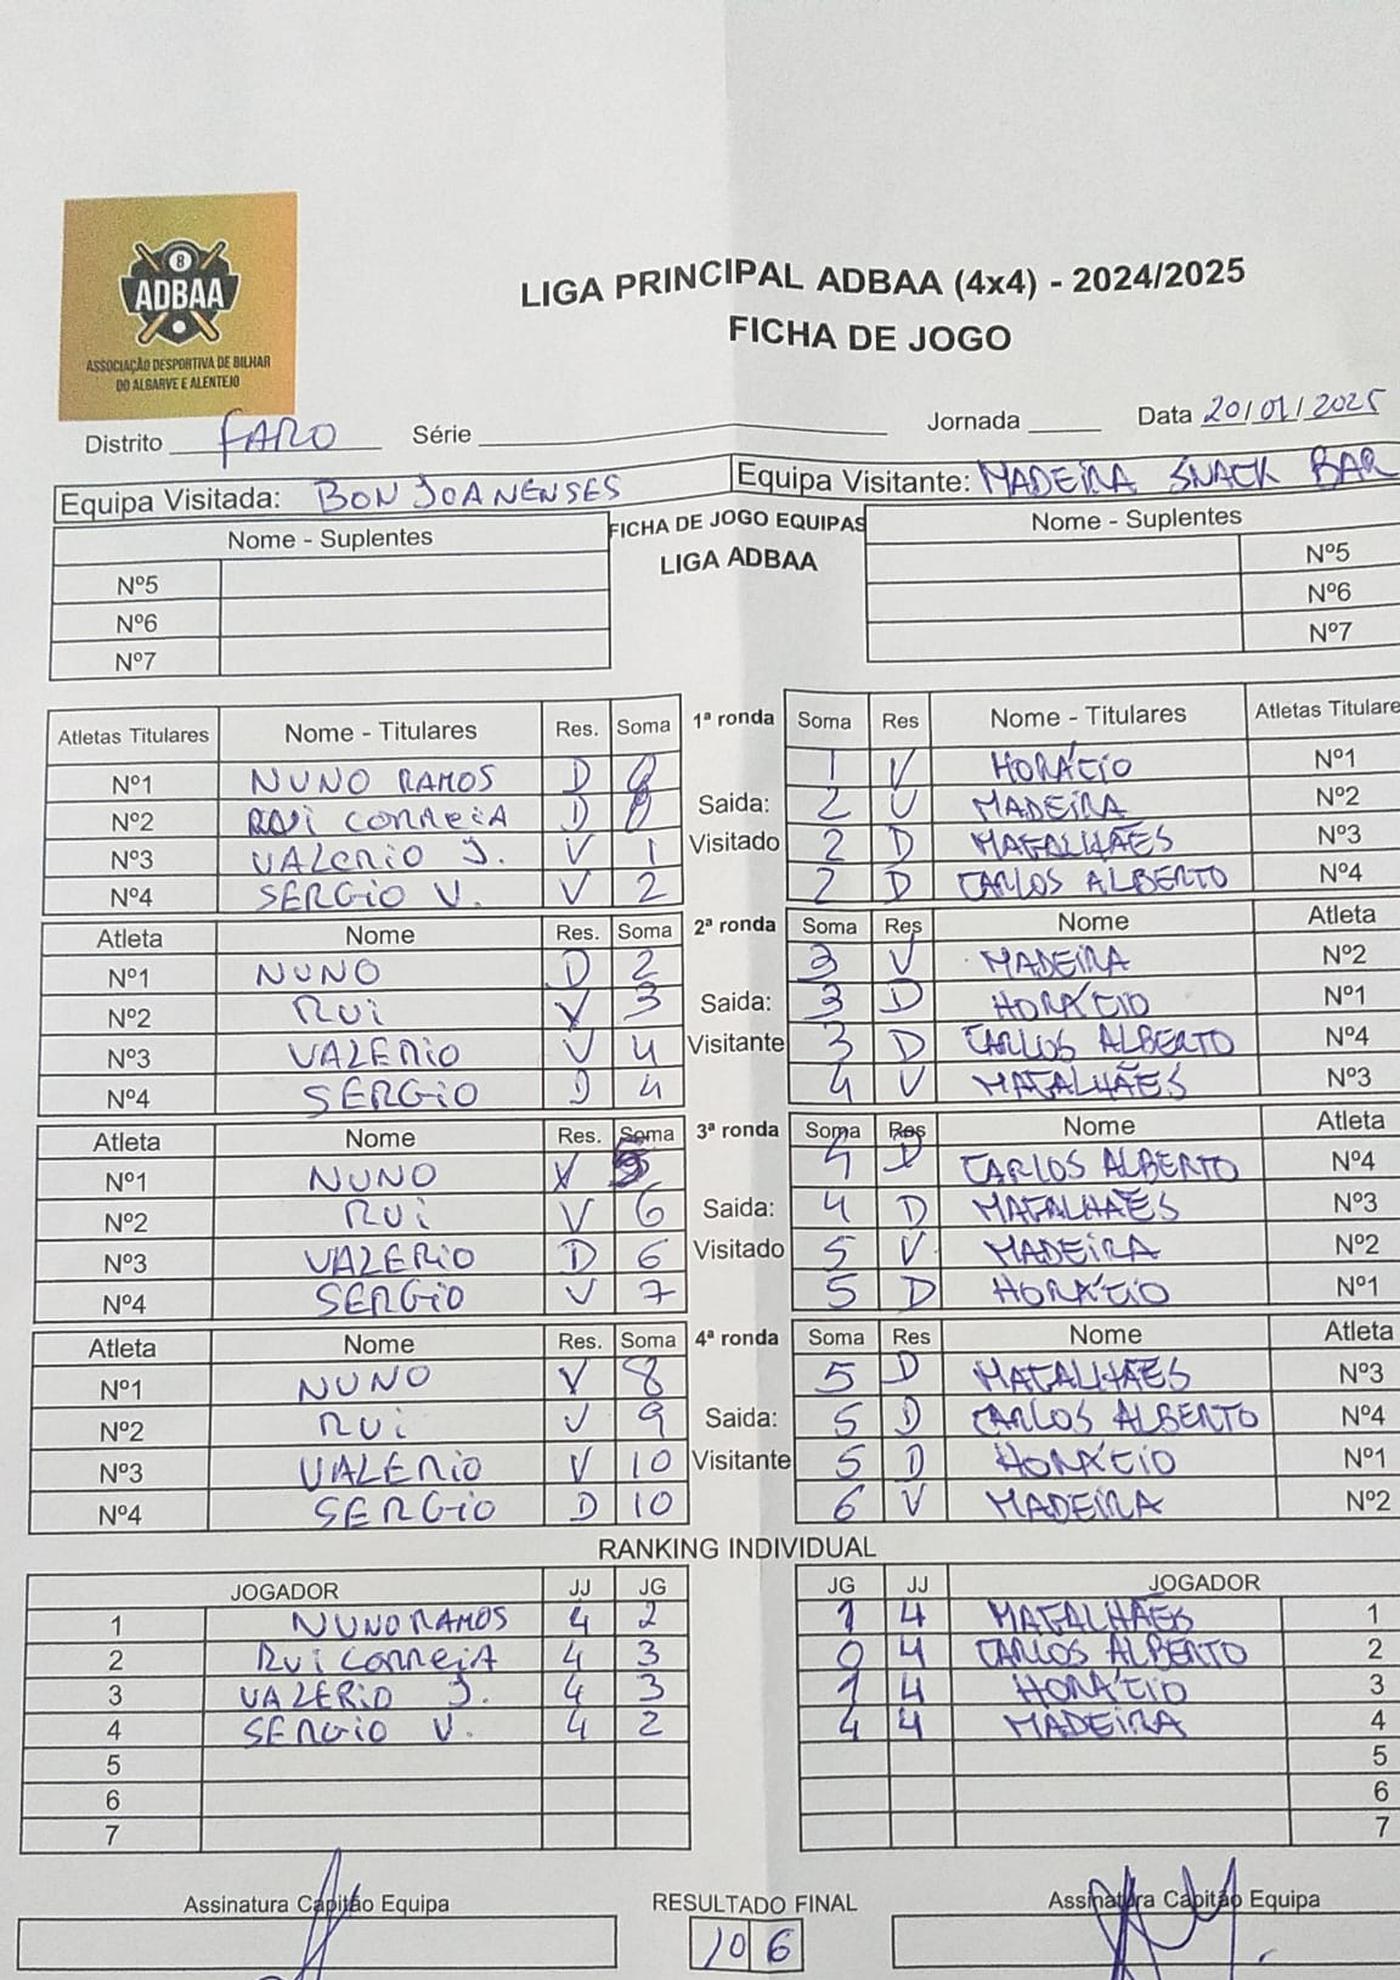 8
ADBAA
ASSOCIAÇÃO DESPORTIVA DE BILHAR
DO ALGARVE E ALENTEJO
LIGA PRINCIPAL ADBAA (4x4) - 2024/2025
FICHA DE JOGO
Distrito FARO Série Jornada Data 20/01/2025
Equipa Visitada: BON JOANENSES Equipa Visitante: MADEIRA SNACK BAR
Nome - Suplentes FICHA DE JOGO EQUIPAS Nome - Suplentes
LIGA ADBAA
Nº5 Nº5
Nº6 Nº6
Nº7 Nº7
Atletas Titulares Nome - Titulares Res. Soma 1ª ronda Soma Res Nome - Titulares Atletas Titulare
Nº1 NUNO RAMOS D 0 1 V HORÁCIO Nº1
Nº2 RUI CORREIA D 0 Saida: 2 V MADEIRA Nº2
Nº3 VALERIO J. V 1 Visitado 2 D MAGALHÃES Nº3
Nº4 SERGIO V. V 2 2 D CARLOS ALBERTO Nº4
Atleta Nome Res. Soma 2ª ronda Soma Res Nome Atleta
Nº1 NUNO D 2 3 V MADEIRA Nº2
Nº2 RUI V 3 Saida: 3 D HORÁCIO Nº1
Nº3 VALERIO V 4 Visitante 3 D CARLOS ALBERTO Nº4
Nº4 SERGIO D 4 4 V MAGALHÃES Nº3
Atleta Nome Res. Soma 3ª ronda Soma Res Nome Atleta
Nº1 NUNO V 5 4 D CARLOS ALBERTO Nº4
Nº2 RUI V 6 Saida: 4 D MAGALHAES Nº3
Nº3 VALERIO D 6 Visitado 5 V MADEIRA Nº2
Nº4 SERGIO V 7 5 D HORÁCIO Nº1
Atleta Nome Res. Soma 4ª ronda Soma Res Nome Atleta
Nº1 NUNO V 8 5 D MAGALHÃES Nº3
Nº2 RUI V 9 Saida: 5 D CARLOS ALBERTO Nº4
Nº3 VALERIO V 10 Visitante 5 D HORÁCIO Nº1
Nº4 SERGIO D 10 6 V MADEIRA Nº2
RANKING INDIVIDUAL
JOGADOR JJ JG JG JJ JOGADOR
1 NUNO RAMOS 4 2 1 4 MAGALHÃES 1
2 RUI CORREIA 4 3 0 4 CARLOS ALBERTO 2
3 VALERIO J. 4 3 1 4 HORÁCIO 3
4 SERGIO V. 4 2 4 4 MADEIRA 4
5 5
6 6
7 7
Assinatura Capitão Equipa RESULTADO FINAL Assinatura Capitão Equipa
10 6